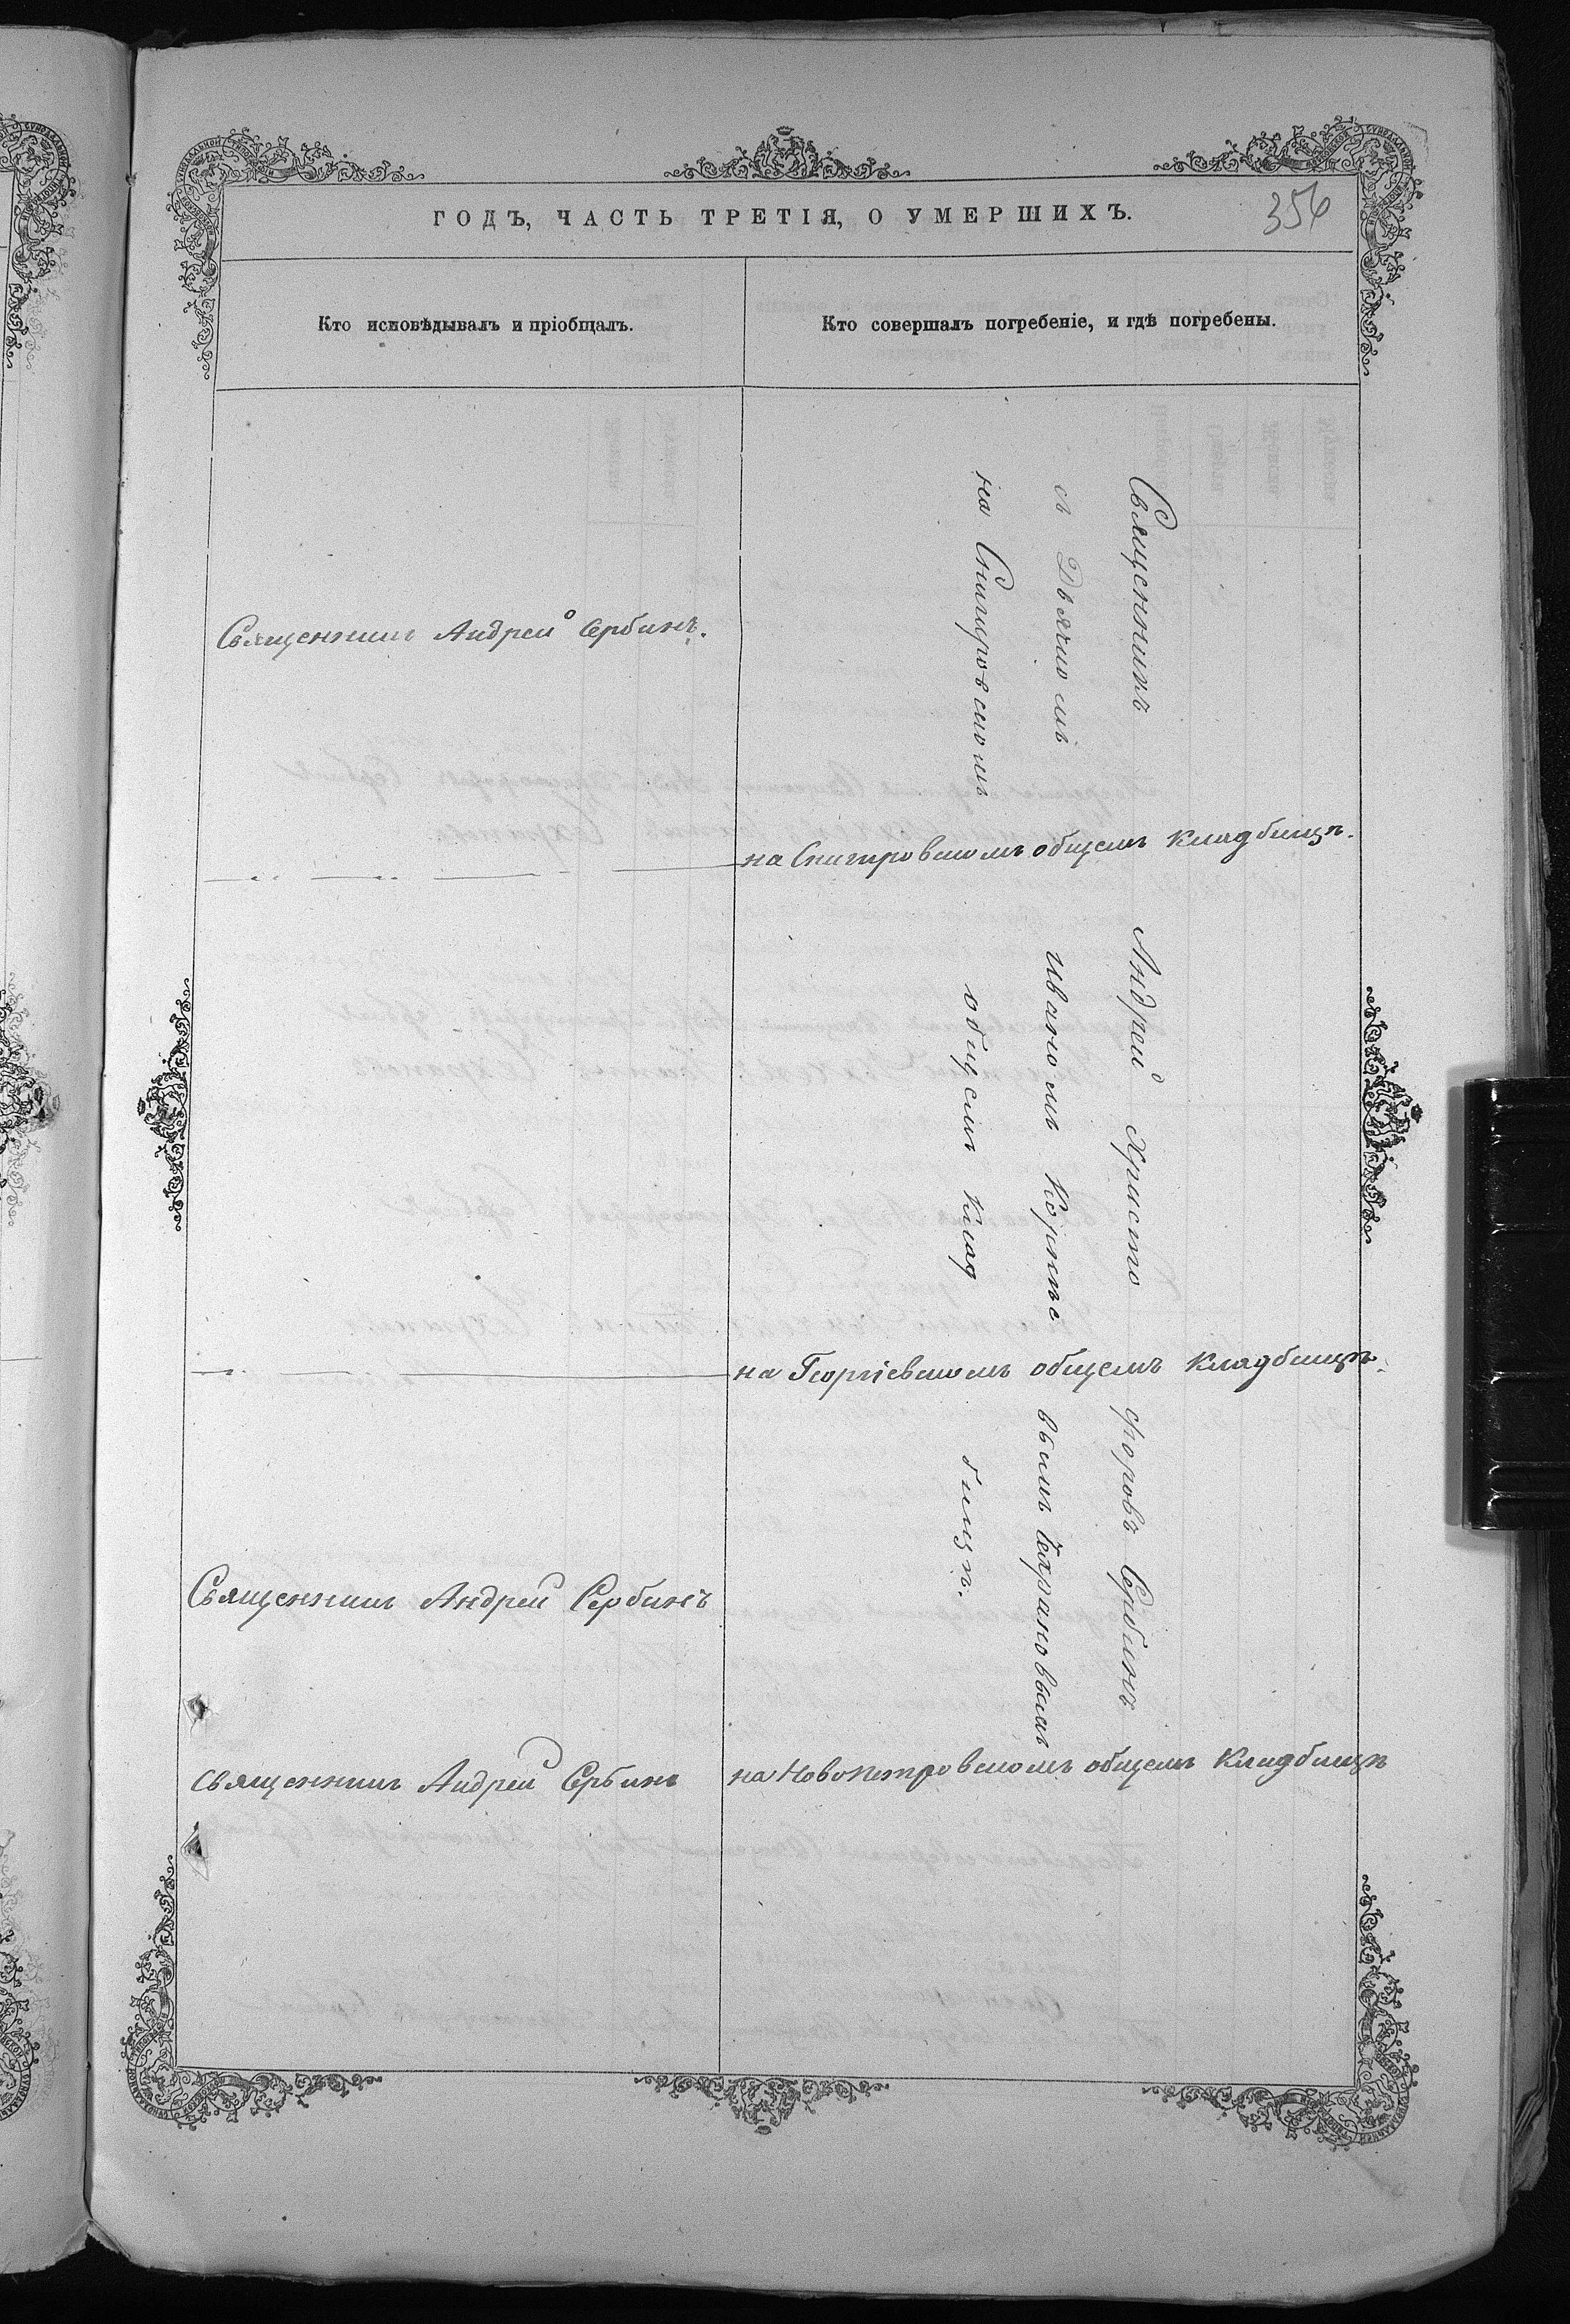 ГОДЪ, ЧАСТЬ ТРЕТІЯ, О УМЕРШИХЪ.
356
Кто исповѣдывалъ и пріобщалъ.
Кто совершалъ погребеніе, и гдѣ погребены.
Священникъ Андрей Сербинъ.
Священникъ Андрей Христофоровъ Сербинъ
съ Дьячкомъ Иваномъ Корнѣевымъ
на Снигировскомъ общемъ кладбищѣ.
на Снигировскомъ общемъ кладбищѣ.
на Георгіевскомъ общемъ кладбищѣ.
Священникъ Андрей Сербинъ
Священникъ Андрей Сербинъ
на Новопетровскомъ общемъ кладбищѣ